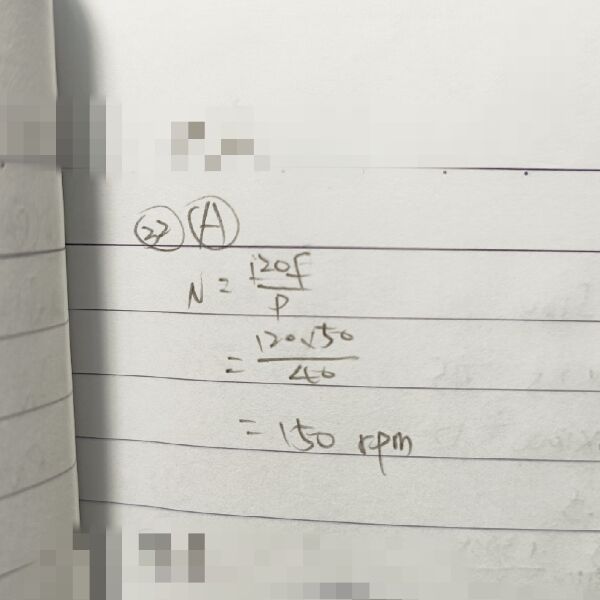 22 A
N = 120f / P
= 120x50 / 40
= 150 rpm